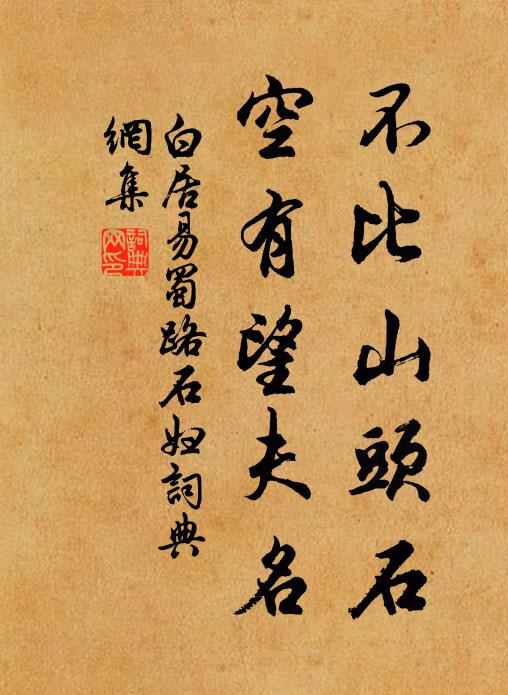 不比山頭石
空有望夫名
白居易蜀路石妲詞典
網集
詞典網印